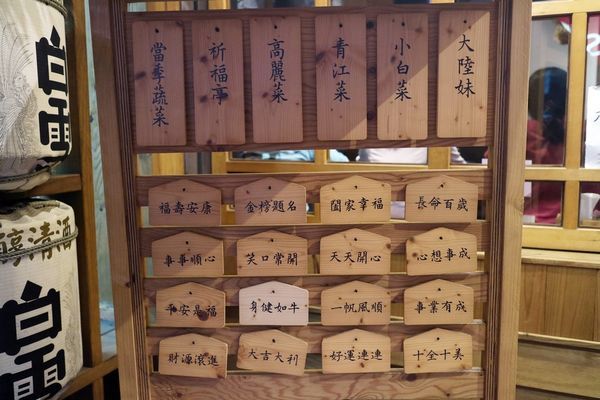 當季蔬菜
祈福亭
高麗菜
青江菜
小白菜
大陸妹
福壽安康
金榜題名
闔家幸福
長命百歲
事事順心
笑口常開
天天開心
心想事成
平安是福
身健如牛
一帆風順
事業有成
財源滾進
大吉大利
好運連連
十全十美
白雪
清酒
白雪